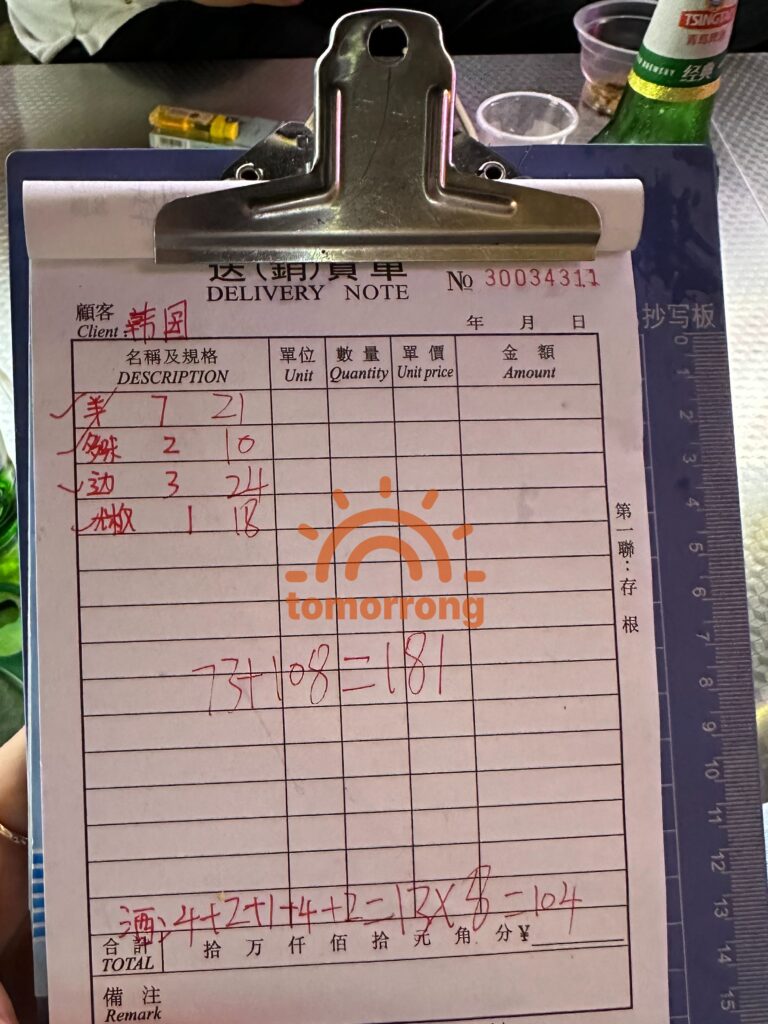 TSINGTAO
青島啤酒
经典
送(銷)貨單
DELIVERY NOTE
№ 30034311
顧客
Client: 韩国
年 月 日
抄写板
名稱及規格 單位 數量 單價 金額
DESCRIPTION Unit Quantity Unit price Amount
羊 7 21
多味 2 10
边 3 24
1 18
第一聯:存根
tomorrong
73+108=181
酒:4+2+1+4+2=13×8=104
合計 拾 万 仟 佰 拾 元 角 分¥
TOTAL
備注
Remark
0
1
2
3
4
5
6
7
8
9
10
11
12
13
14
15